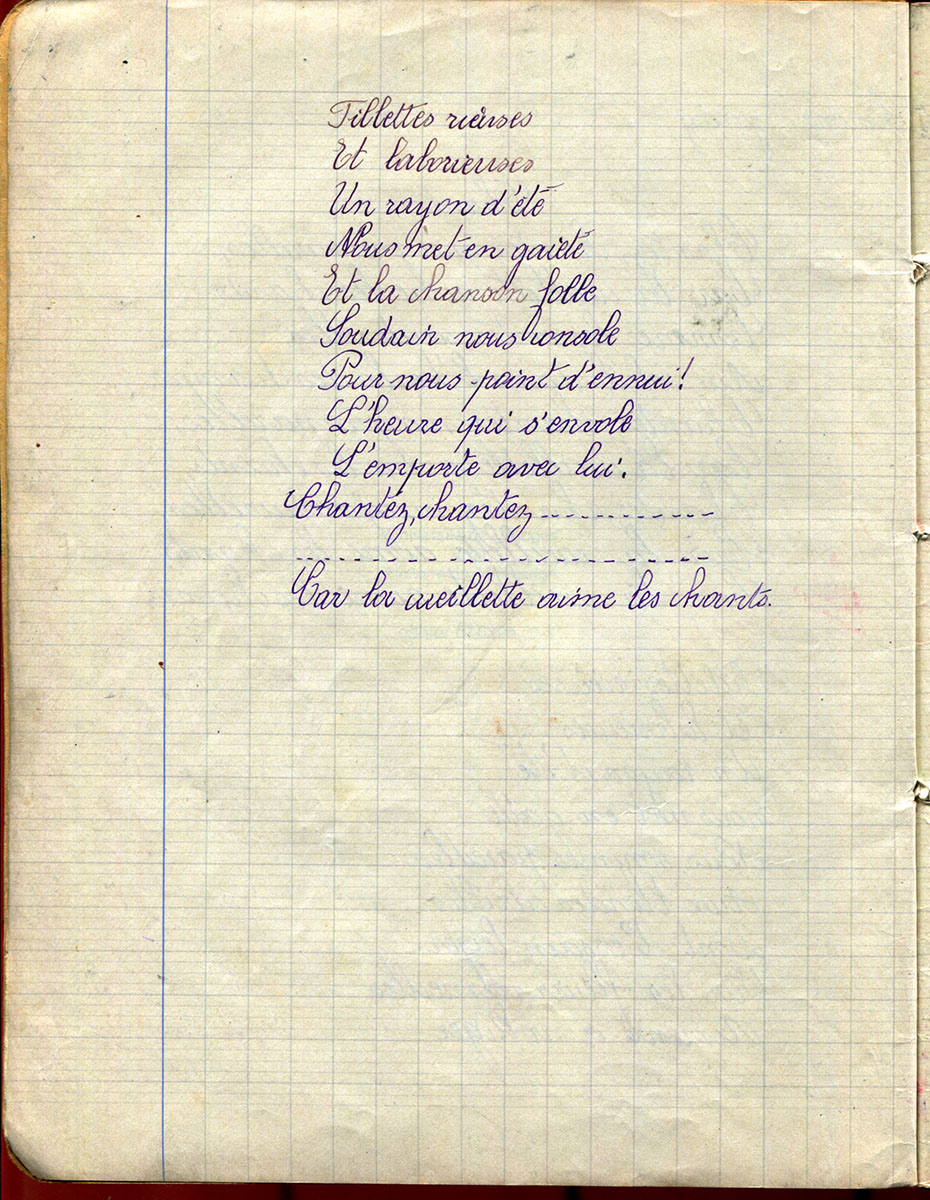 Fillettes rieuses
Et laborieuses
Un rayon d'été
Nous met en gaieté
Et la chanson folle
Soudain nous console
Pour nous point d'ennui!
L'heure qui s'envole
L'emporte avec lui.
Chantez, chantez ................
................................
Car la cueillette aime les chants.